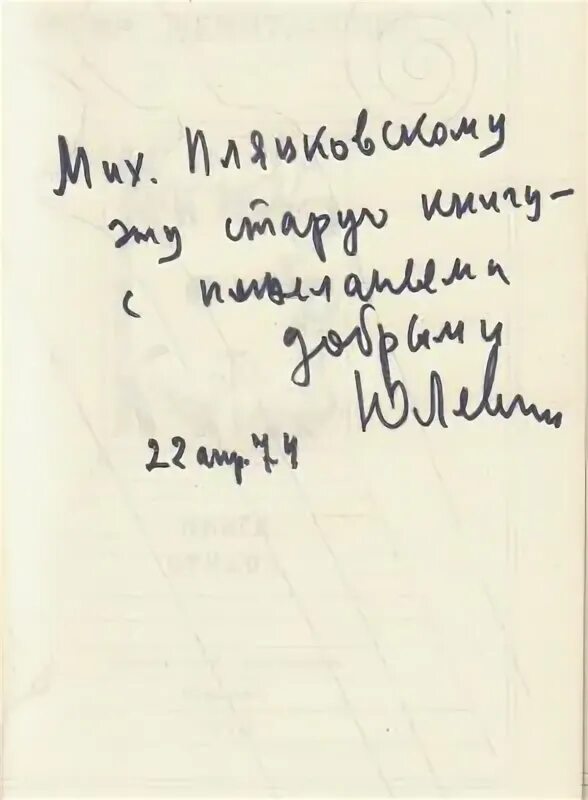 Мих. Пляцковскому
эту старую книгу –
с пожеланьями
добрыми
ЮЛевин
22 апр. 74